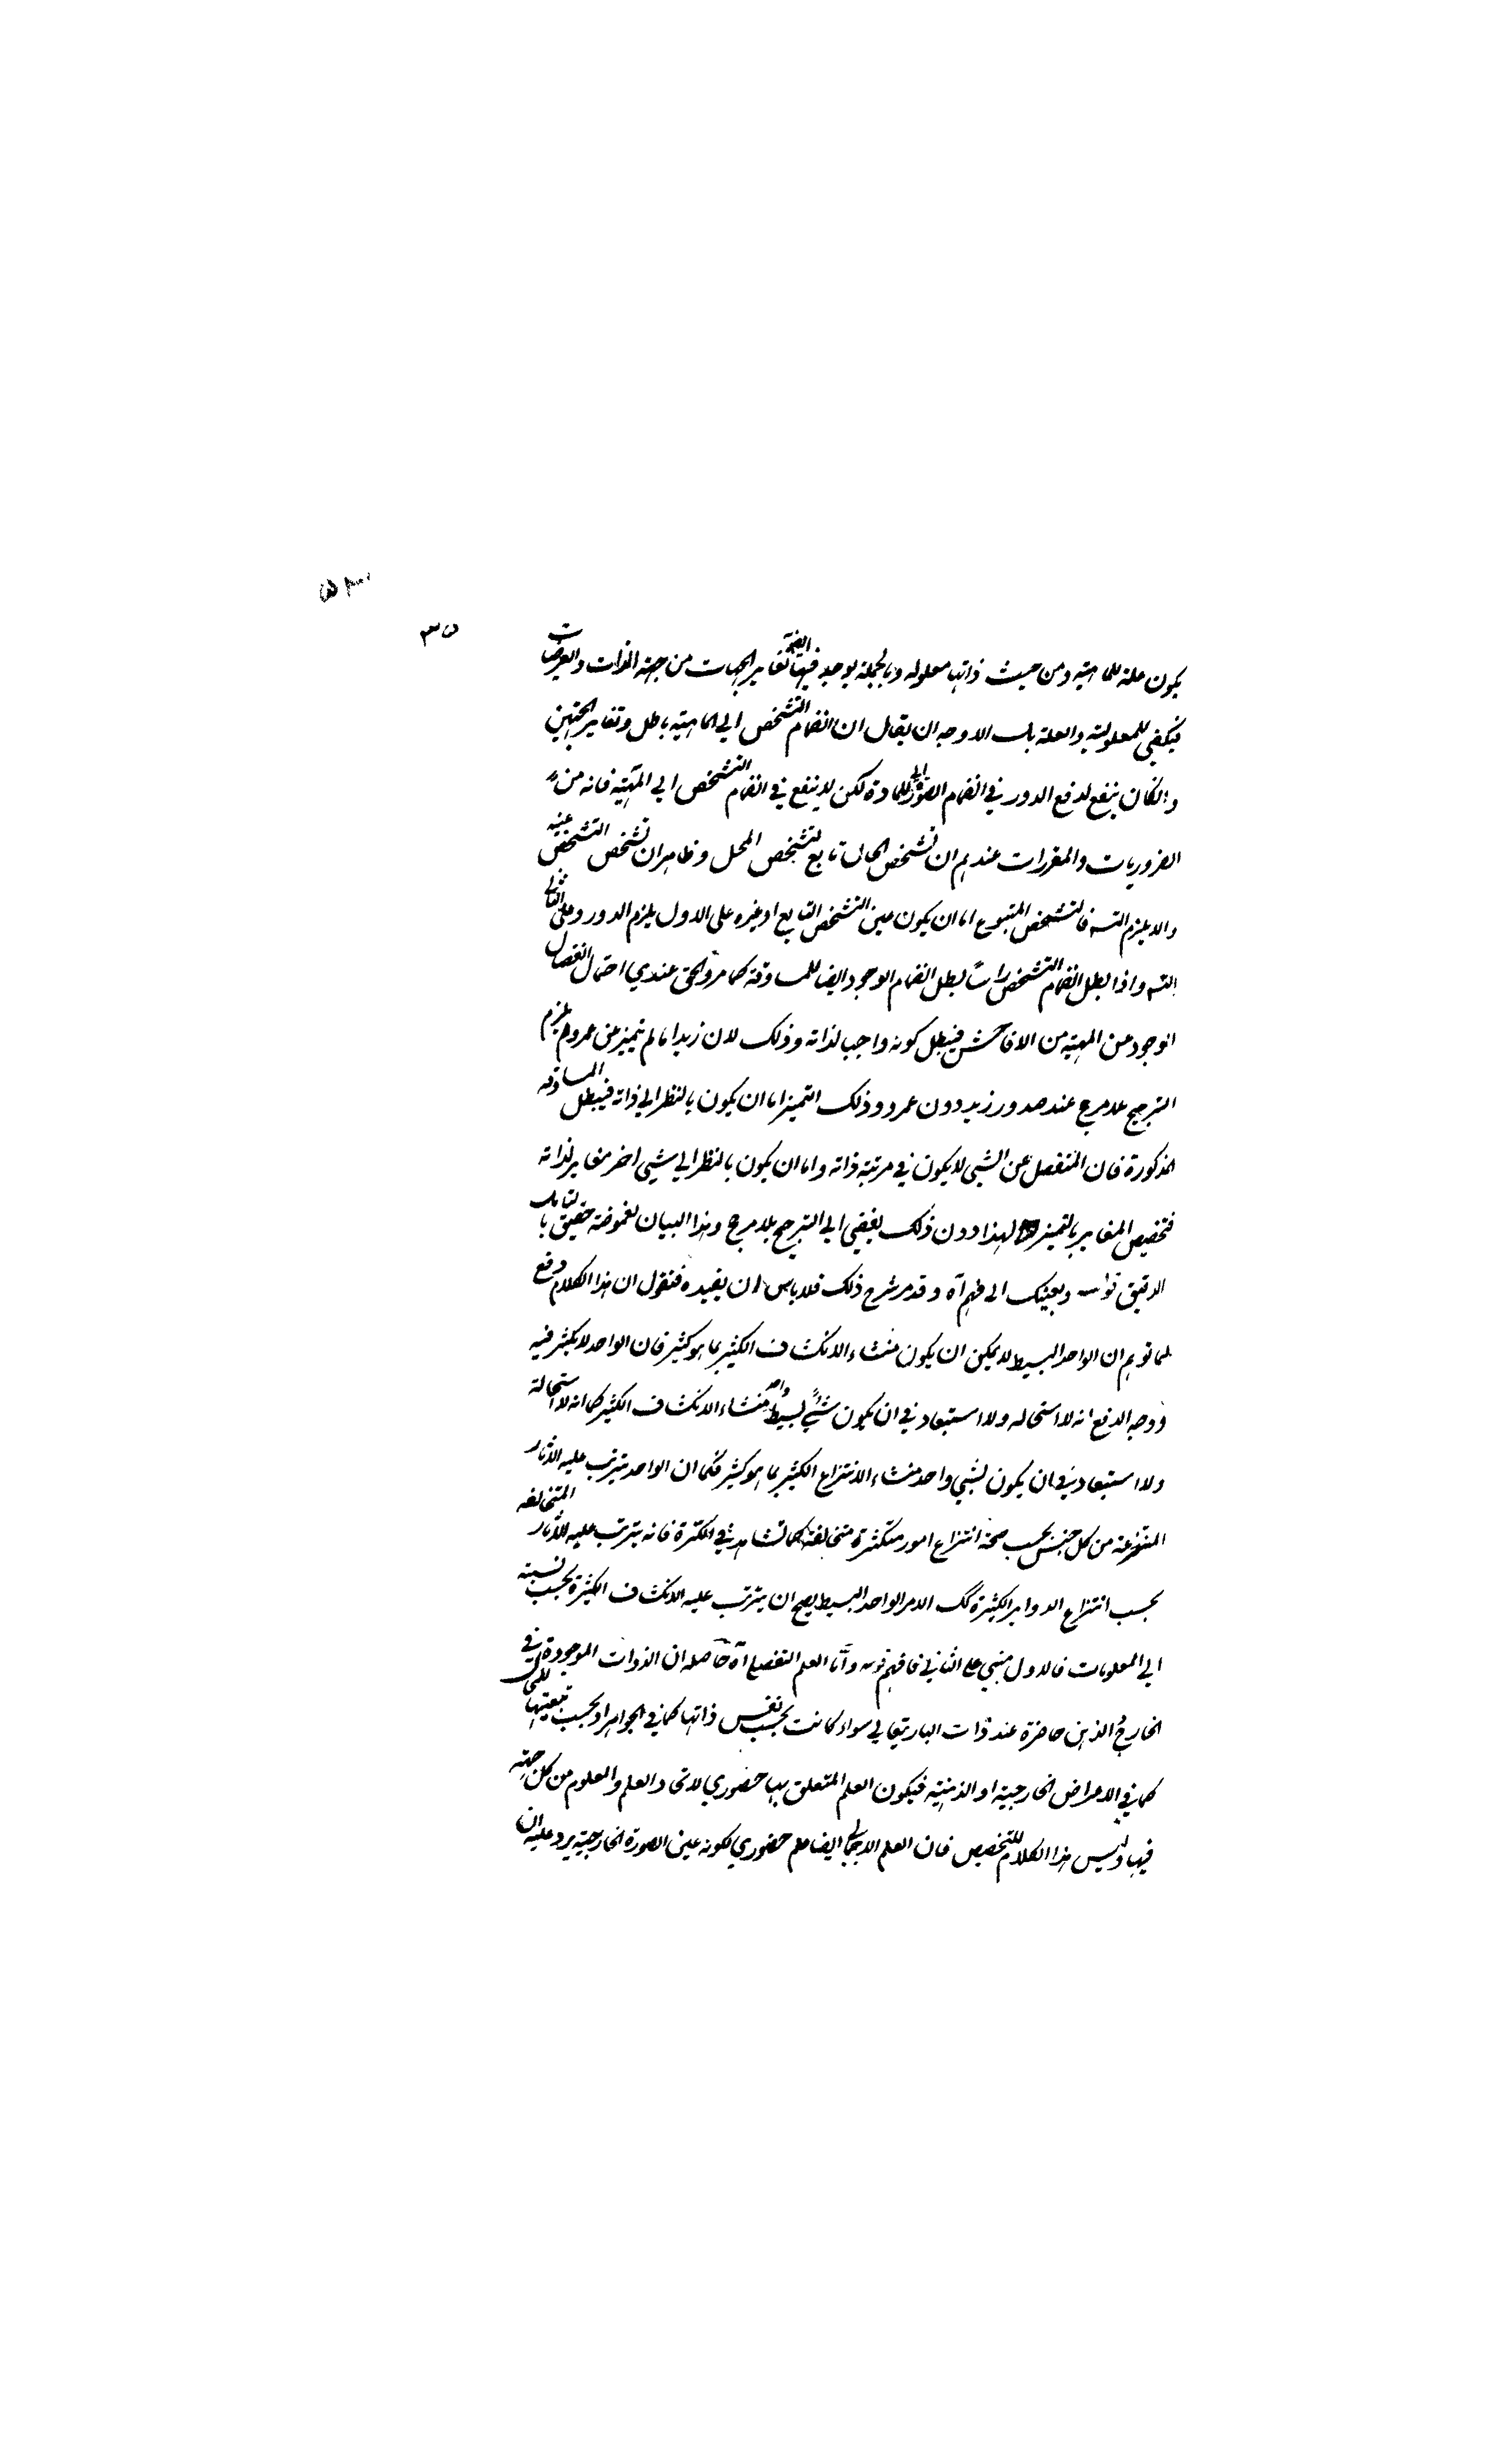 ٣٥
يكون علة للماهية ومن حيث ذاتها معلولة وبالجملة يوجد فيها ايضا تغاير الجهات من جهة الذات والعرضيات
فيكفي للمعلولية والعلة بل الاوجه ان يقال ان انضمام التشخص الى الماهية باطل وتغاير الجهتين
وانكان ينفع لدفع الدور في انضمام الصورة الى المادة لكن لا ينفع في انضمام التشخص الى المهية فانه من
الضروريات والمقررات عندهم ان تشخص الحال تابع لتشخص المحل وظاهر ان تشخص التشخص عينه
والا يلزم التسه فالتشخص المتبوع اما ان يكون عين التشخص التابع او غيره على الاول يلزم الدور وعلى الثاني
التسه واذا بطل انضمام التشخص راسا بطل انضمام الوجود ايضا للمساوقة كما مر والحق عندي احتمال انفصال
الوجود عن المهية من الافاحش فيبطل كونه واجبا لذاته وذلك لان زيدا ما لم يتميز عن عمرو يلزم
الترجيح بلا مرجح عند صدور زيد دون عمرو وذلك التميز اما ان يكون بالنظر الى ذاته فيبطل المساوقة
المذكورة فان المنفصل عن الشيء لا يكون في مرتبة ذاته واما ان يكون بالنظر الى شيء اخر مغاير لذاته
فتخصيص المغاير بالتميز لهذا دون ذلك يفضي الى الترجيح بلا مرجح وهذا البيان لغموضته حقيق بالتامل
الدقيق قوله ويعينك الى فهم آه وقد مر شرح ذلك فلا باس ان نعيده فنقول ان هذا الكلام دفع
لما توهم ان الواحد البسيط لا يمكن ان يكون منشاء لانكشاف الكثير بما هو كثير فان الواحد لا يكثر فيه
ووجه الدفع انه لا استحالة ولا استبعاد في ان يكون شيئ واحد بسيط منشاء لانكشاف الكثير كما انه لا استحالة
ولا استبعاد في ان يكون لشيء واحد منشاء لانتزاع الكثير بما هو كثير فكما ان الواحد يترتب عليه الاثار
المتفرعة من كل جنس بحسب صحة انتزاع امور متكثرة متخالفة كما تشاهد في الكرة فانه يترتب عليه الاثار المتخالفة
بحسب انتزاع الدوائر الكثيرة كك الامر الواحد البسيط يصح ان يترتب عليه الانكشاف الكثيرة بحسب نسبته
الى المعلومات فالاول مبني على الثاني فافهم قوله واما العلم التفصيلي آه حاصله ان الذوات الموجودة في
الخارج والذهن حاضرة عند ذات الباري تعالى سواء كانت بحسب نفس ذاتها كما في الجواهر او بحسب تبعيتها للمحل
كما في الاعراض الخارجية او الذهنية فيكون العلم المتعلق بها حضوري لاتحاد العلم والمعلوم من كل جهة
فيها وليس هذا الكلام للتخصيص فان العلم الاجمالي ايضا علم حضوري لكونه عين الصورة الخارجية يرد عليه ان